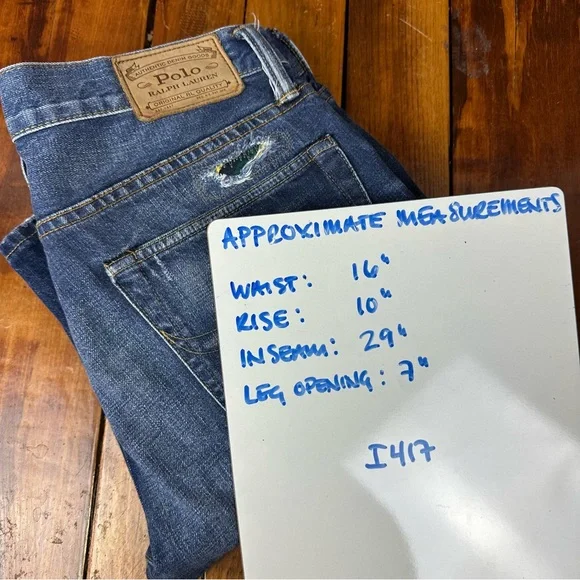 AUTHENTIC DENIM GOODS
Polo
RALPH LAUREN
ORIGINAL RL QUALITY
APPROXIMATE MEASUREMENTS
WAIST: 16"
RISE: 10"
INSEAM: 29"
LEG OPENING: 7"
I417